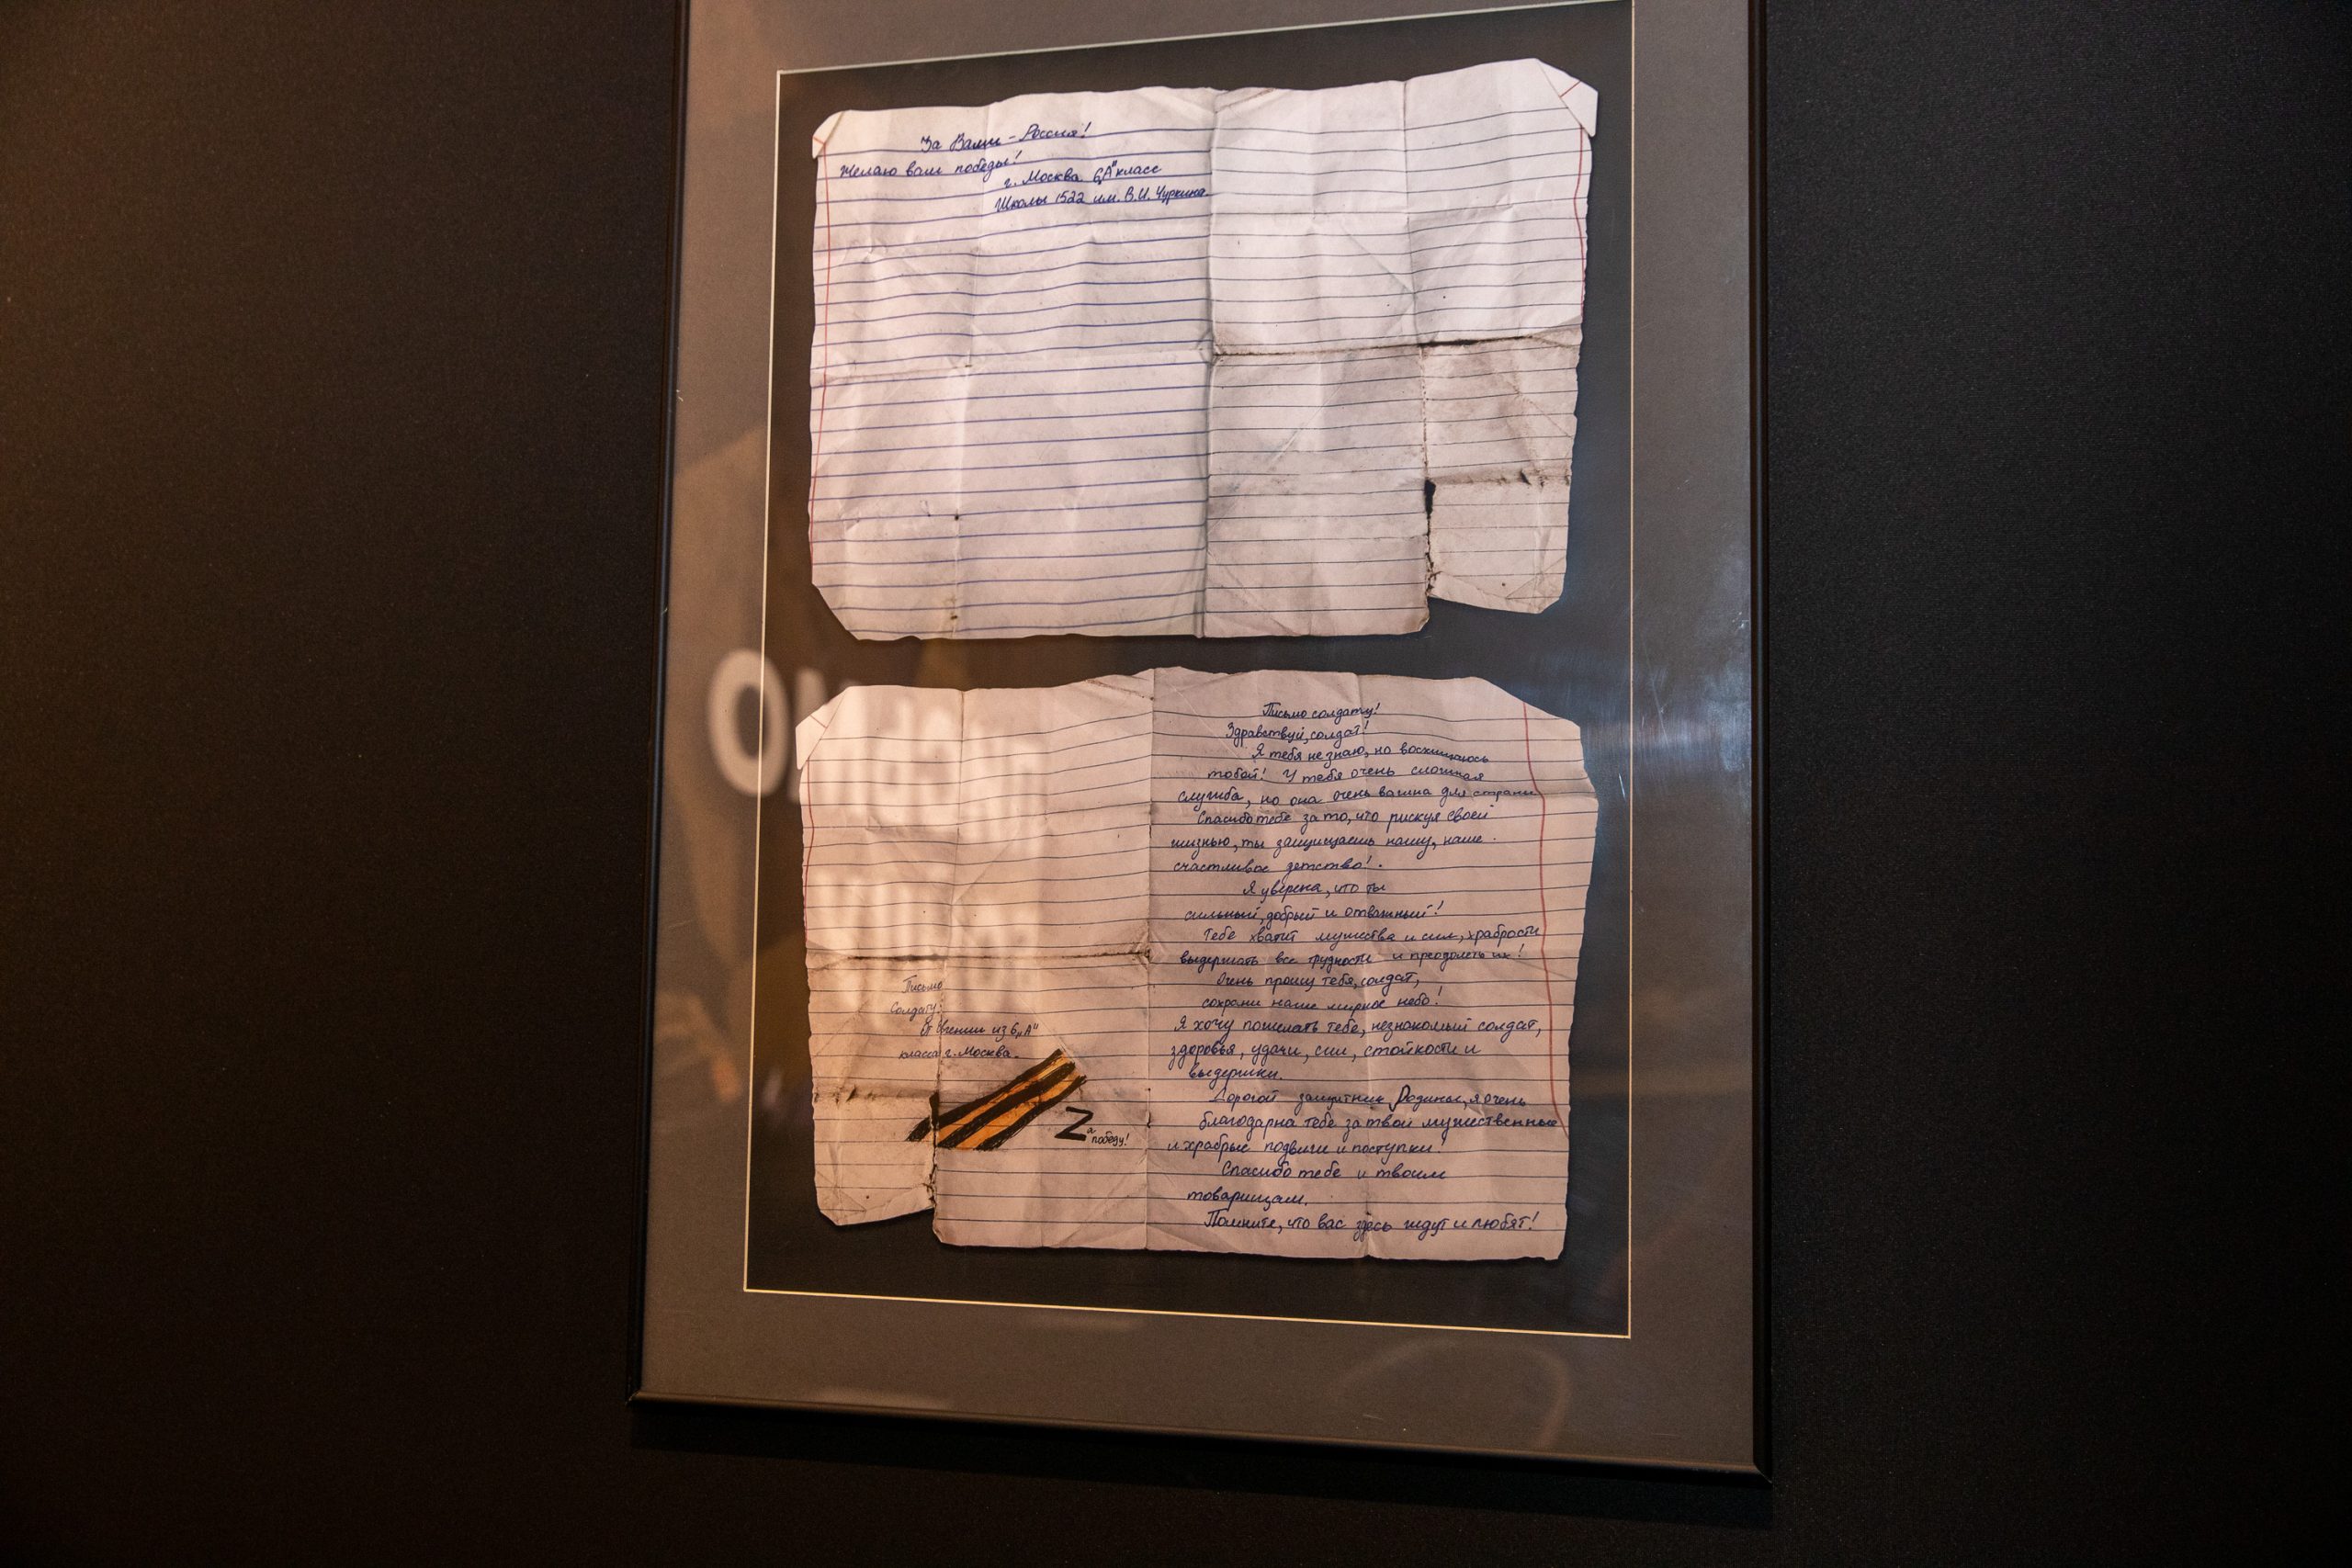 За Вами - Россия!
Желаю вам победы!
г. Москва. 6„А" класс
Школы 1522 им. В.И. Чуркина.
Письмо солдату!
Здравствуй, солдат!
Я тебя не знаю, но восхищаюсь
тобой! У тебя очень сложная
служба, но она очень важна для страны.
Спасибо тебе за то, что рискуя своей
жизнью, ты защищаешь нашу, наше
счастливое детство!
Я уверена, что ты
сильный, добрый и отважный!
Тебе хватит мужества и сил, храбрости
выдержать все трудности и преодолеть их!
Очень прошу тебя, солдат,
сохрани наше мирное небо!
Я хочу пожелать тебе, незнакомый солдат,
здоровья, удачи, сил, стойкости и
выдержки.
Дорогой защитник Родины, я очень
благодарна тебе за твои мужественные
и храбрые подвиги и поступки!
Спасибо тебе и твоим
товарищам.
Помните, что вас здесь ждут и любят!
Письмо
Солдату:
От Евгении из 6„А"
класса г. Москва.
Zа победу!